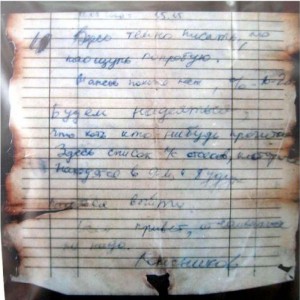 15.15
Здесь темно писать, но
наощупь попробую.
Шансов похоже нет, % 10-20
Будем надеяться,
что хоть кто-нибудь прочитает
Здесь список л/с отсеков, которые
находятся в 9-м и будут
привет, отчаиваться
не надо.
Колесников